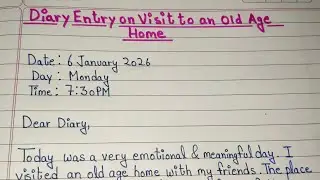 Diary Entry on Visit to an Old Age
Home
Date: 6 January 2026
Day: Monday
Time: 7:30PM
Dear Diary,
Today was a very emotional & meaningful day. I
visited an old age home with my friends. The place